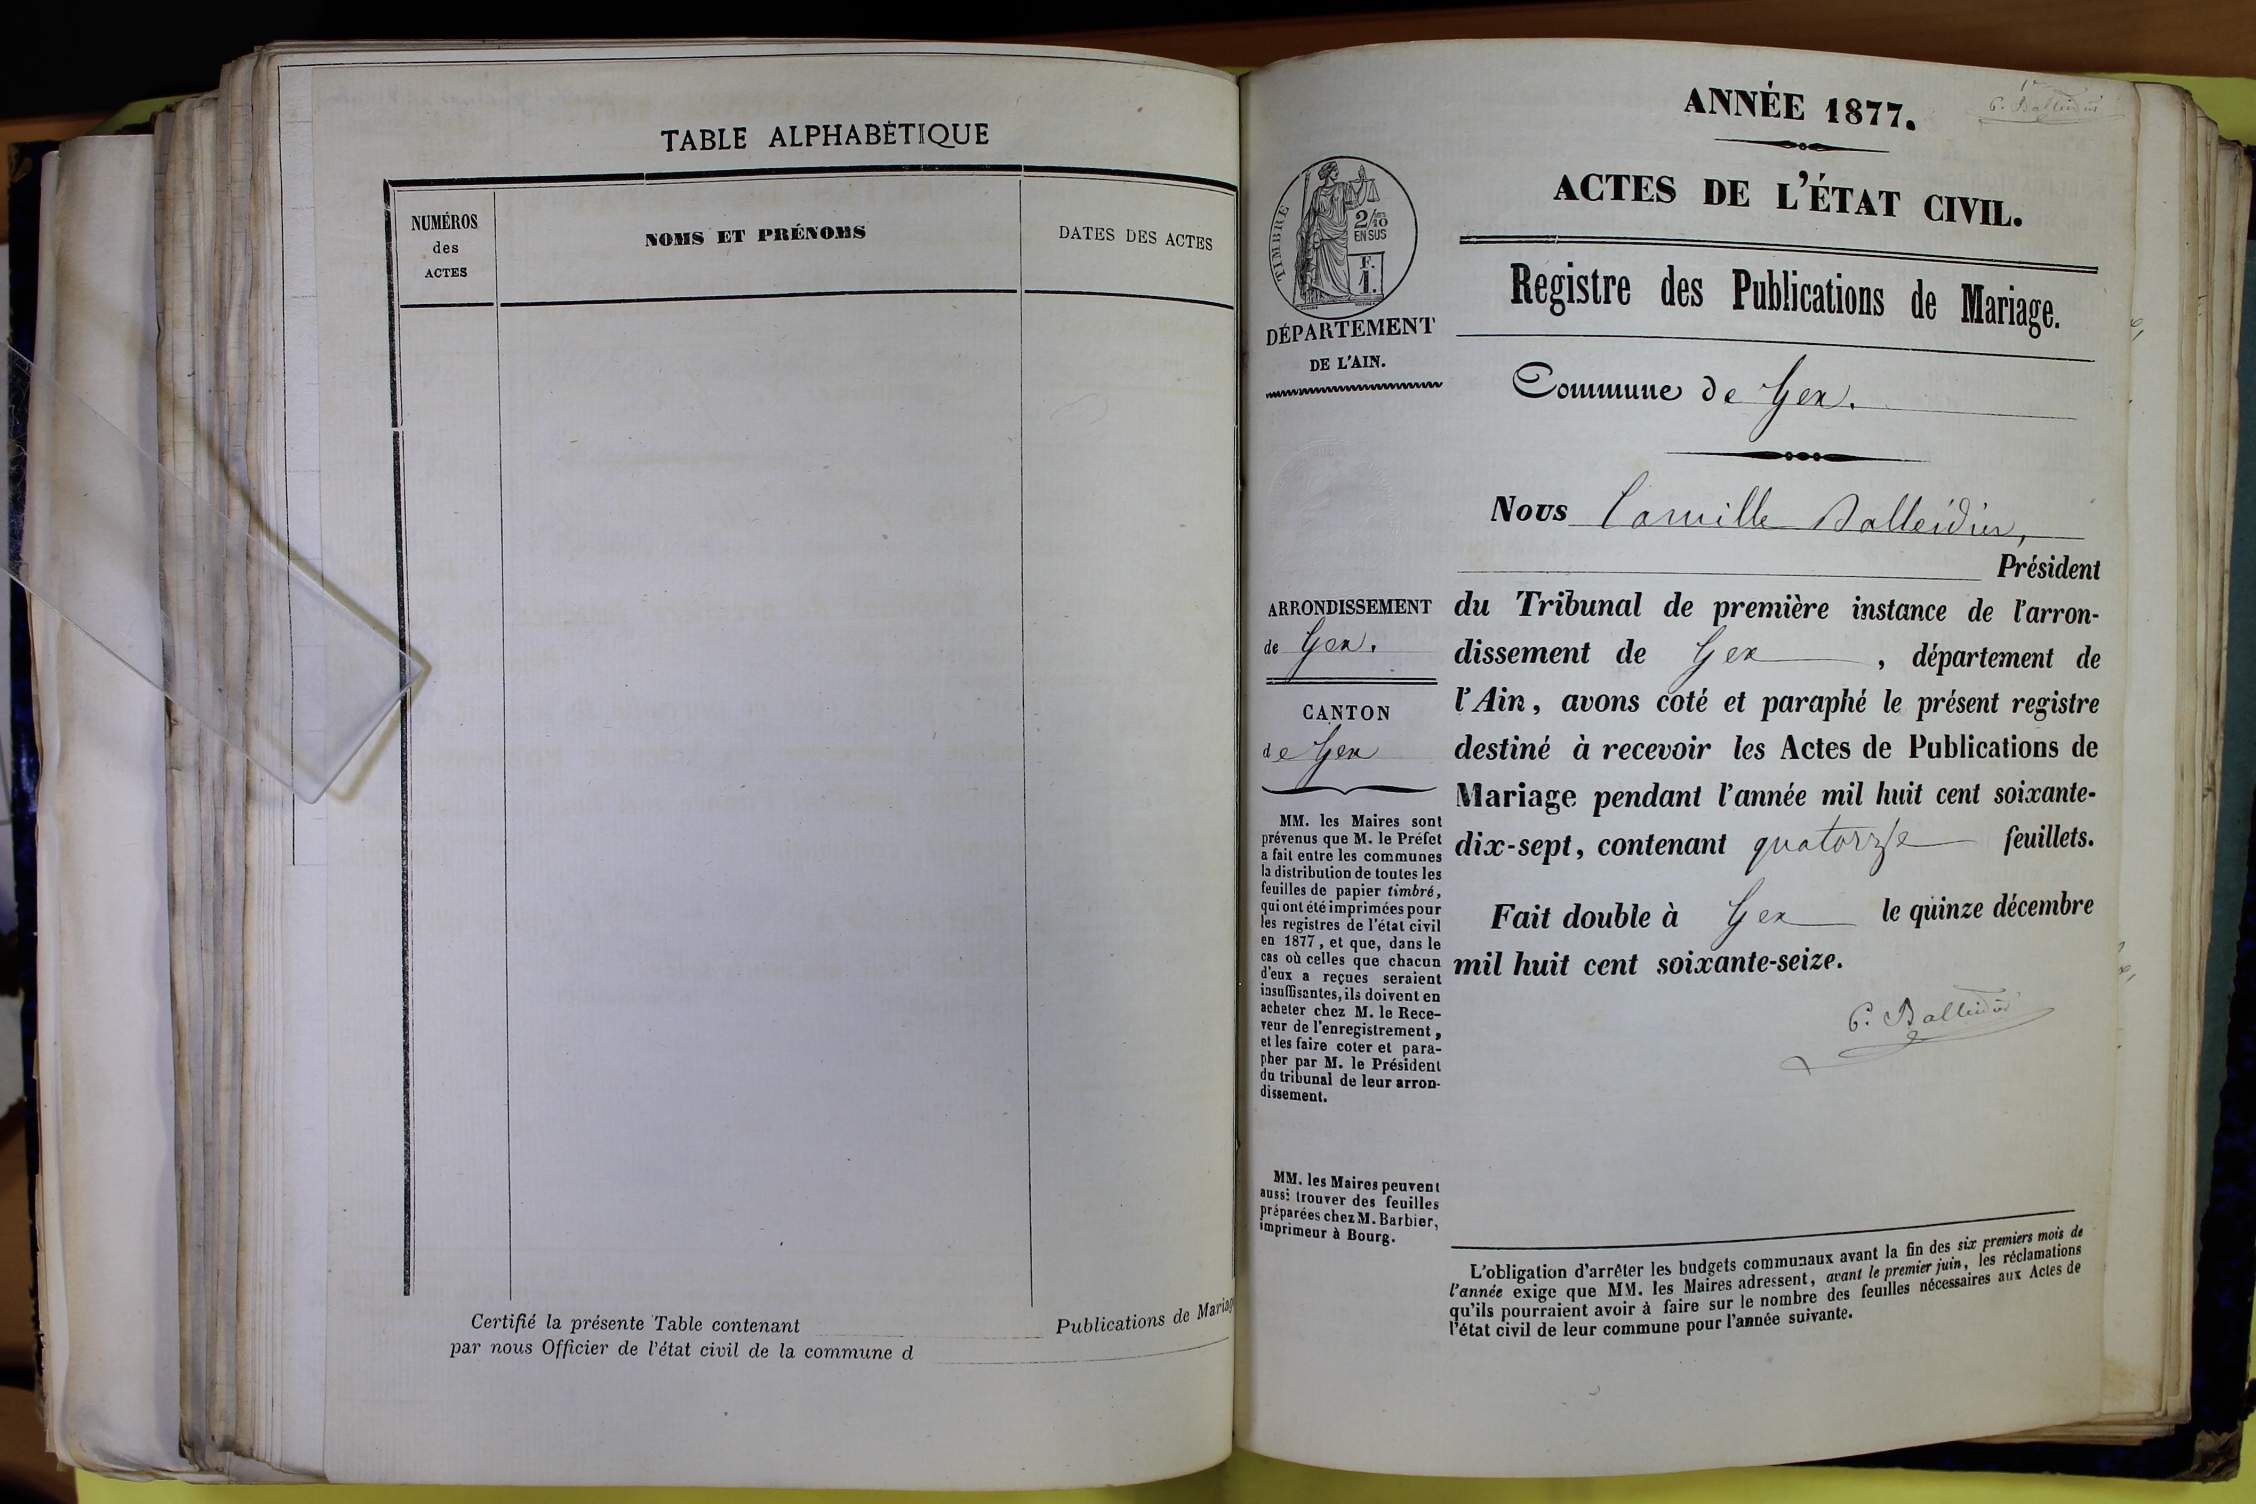 TABLE ALPHABÉTIQUE
NUMÉROS
des
ACTES
NOMS ET PRÉNOMS
DATES DES ACTES
Certifié la présente Table contenant Publications de Mariag
par nous Officier de l'état civil de la commune d
ANNÉE 1877.
ACTES DE L'ÉTAT CIVIL.
TIMBRE
2/10
EN SUS
F.
1.
DÉPARTEMENT
DE L'AIN.
Registre des Publications de Mariage.
Commune de Gex.
Nous Camille Balleidier,
Président
du Tribunal de première instance de l'arron-
dissement de Gex, département de
l'Ain, avons coté et paraphé le présent registre
destiné à recevoir les Actes de Publications de
Mariage pendant l'année mil huit cent soixante-
dix-sept, contenant quatorze feuillets.
Fait double à Gex le quinze décembre
mil huit cent soixante-seize.
C. Balleidier
ARRONDISSEMENT
de Gex.
CANTON
de Gex
MM. les Maires sont
prévenus que M. le Préfet
a fait entre les communes
la distribution de toutes les
feuilles de papier timbré,
qui ont été imprimées pour
les registres de l'état civil
en 1877, et que, dans le
cas où celles que chacun
d'eux a reçues seraient
insuffisantes, ils doivent en
acheter chez M. le Rece-
veur de l'enregistrement,
et les faire coter et para-
pher par M. le Président
du tribunal de leur arron-
dissement.
MM. les Maires peuvent
aussi trouver des feuilles
préparées chez M. Barbier,
imprimeur à Bourg.
L'obligation d'arrêter les budgets communaux avant la fin des six premiers mois de
l'année exige que MM. les Maires adressent, avant le premier juin, les réclamations
qu'ils pourraient avoir à faire sur le nombre des feuilles nécessaires aux Actes de
l'état civil de leur commune pour l'année suivante.